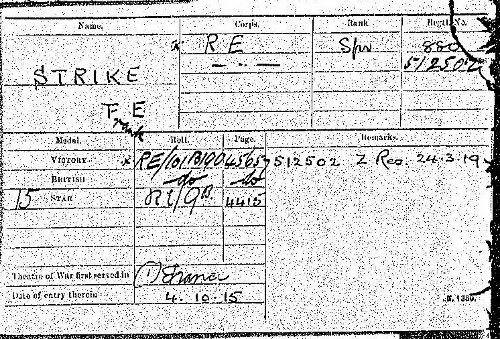 Name. Corps. Rank Regtl. No.
x R E Spr 880
" - . - " 512502
STRIKE
F E
Frank
Medal. Roll. Page. Remarks.
VICTORY x RE/101B100 45657 512502 Z Res. 24.3.19
BRITISH do do
15 STAR RE/9B 4415
Theatre of War first served in (1) France
Date of entry therein 4.10.15